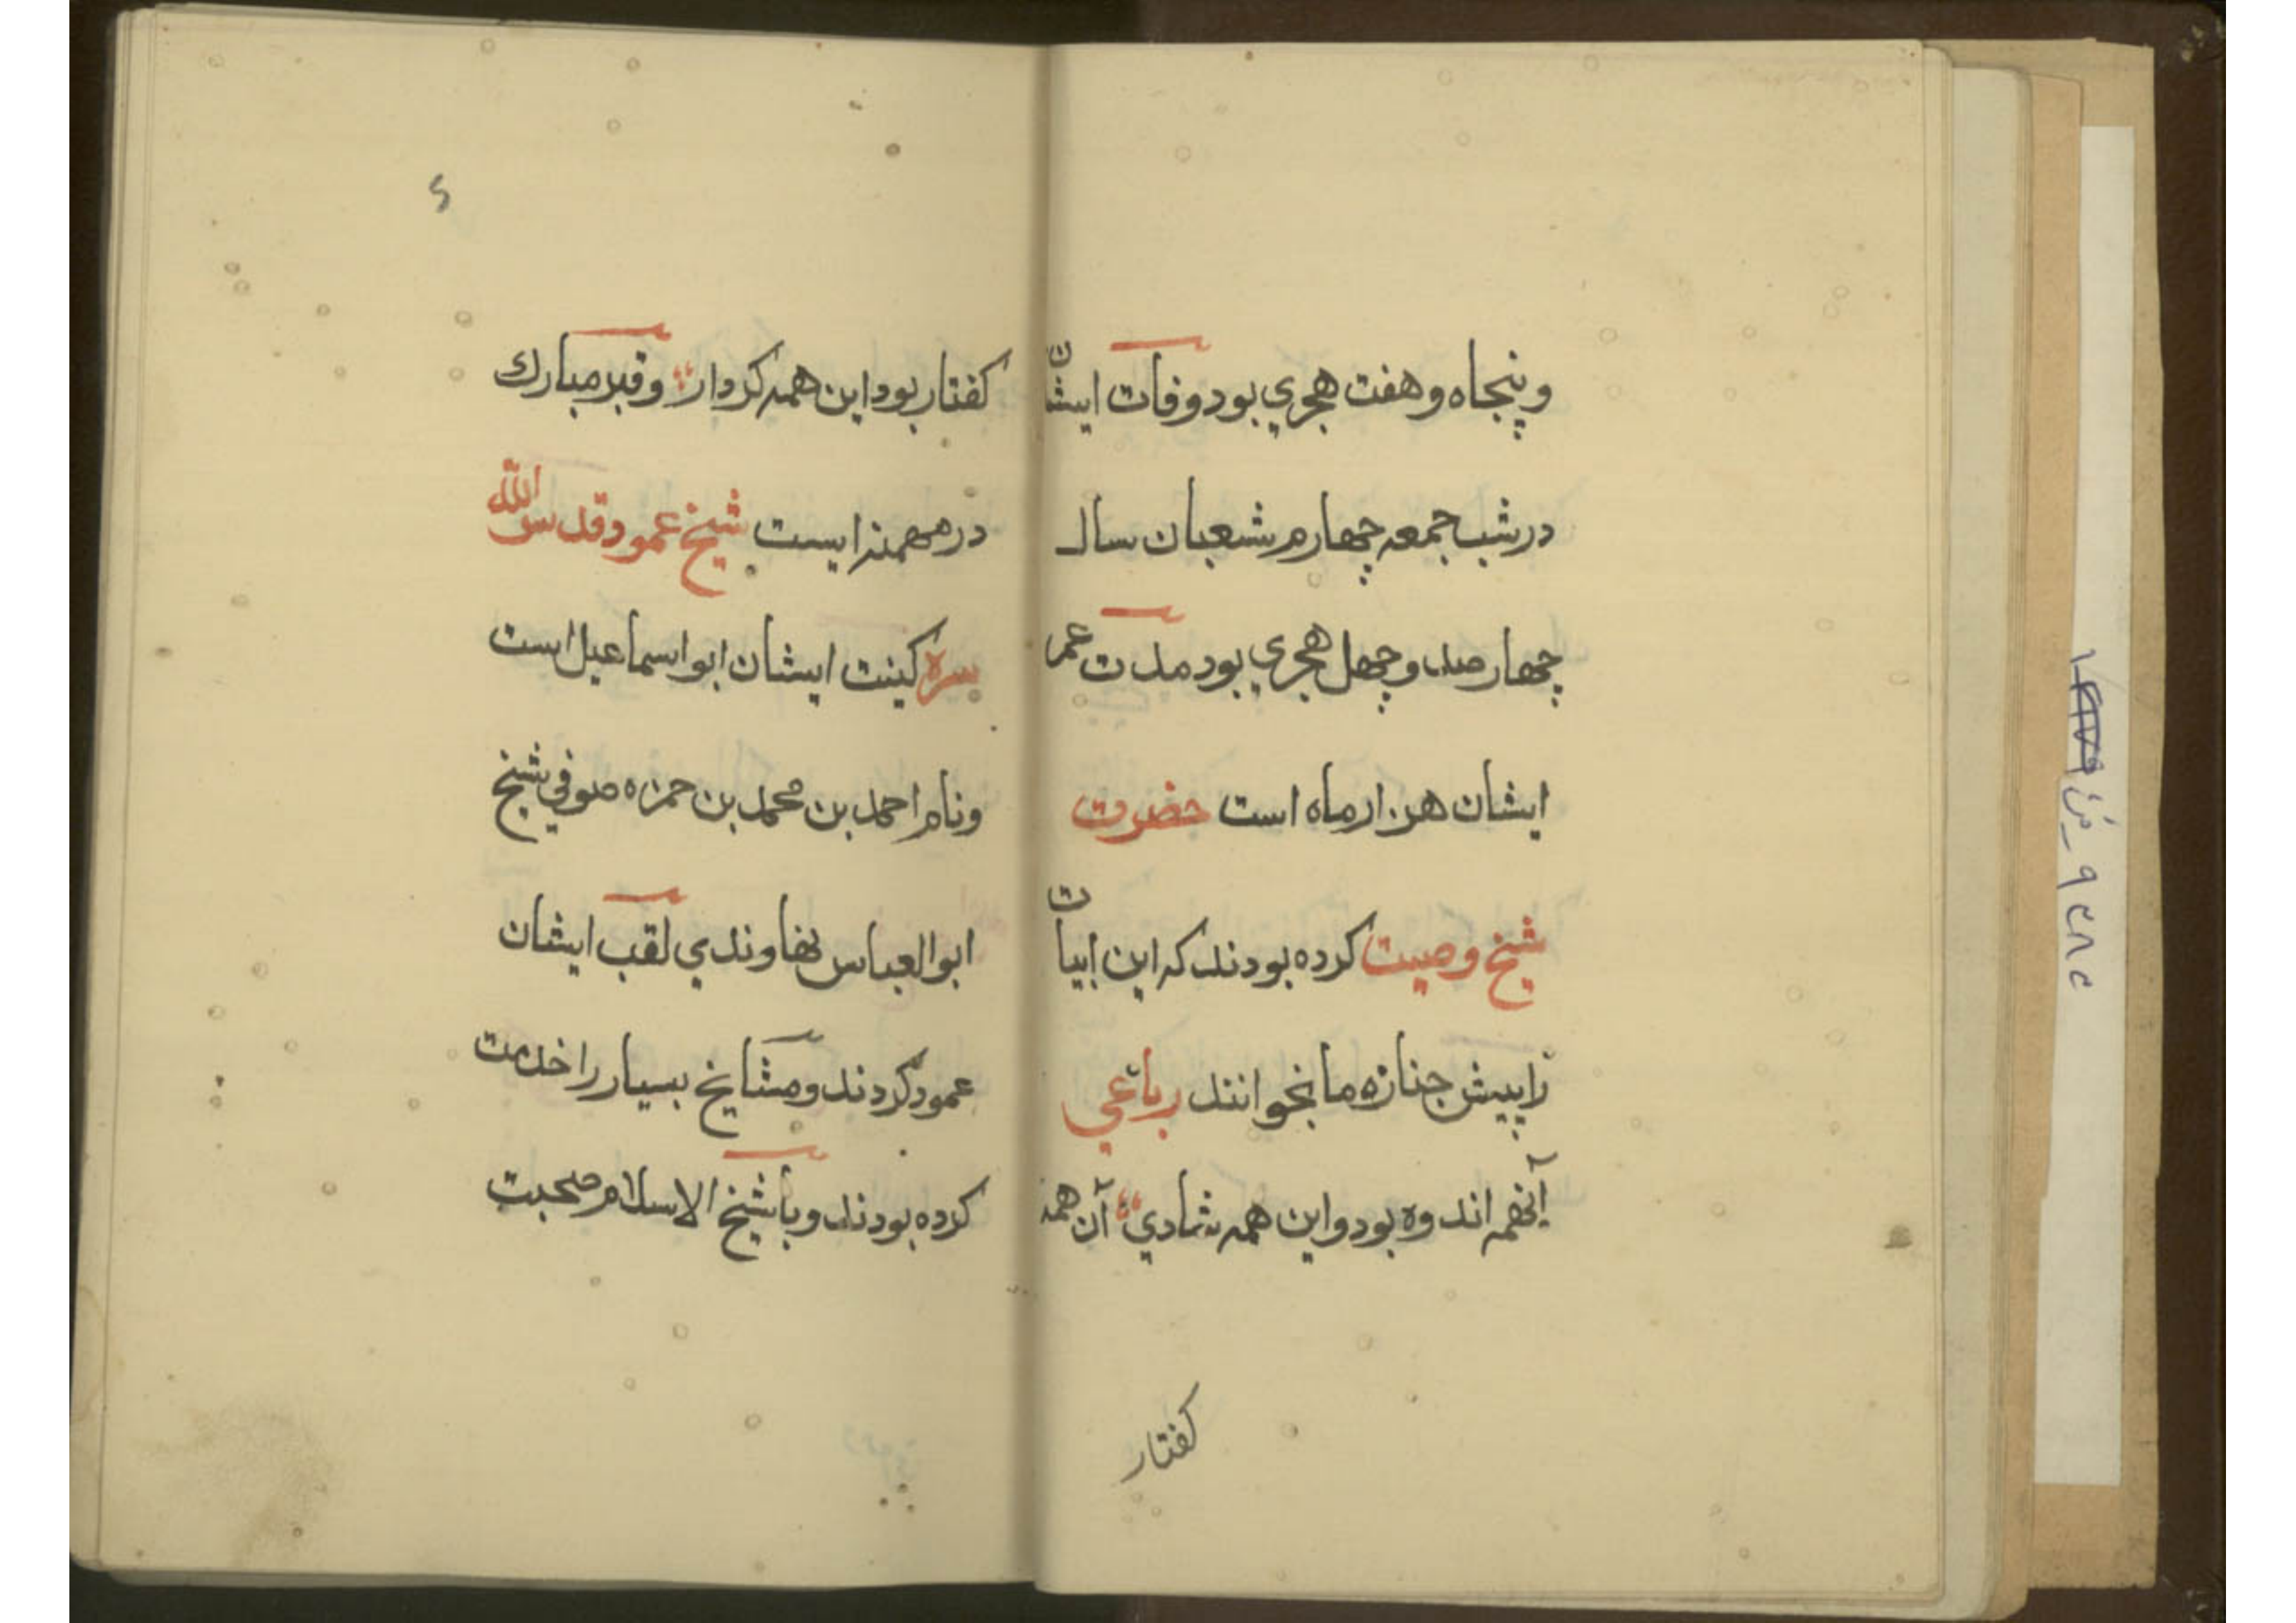 وپنجاه وهفت هجري بود وفات ایشان
درشب جمعه چهارم شعبان سال
چهارصد وچهل هجري بود مدت عمر
ایشان هزار ماه است حضرت
شیخ وصیت کرده بودند که این ابیات
را پیش جنازه ما بخوانند رباعي
آنهمه اندوه بود واین همه شادي آن همه
کفتار
کفتار بود این همه کردار وقبر مبارك
در مهمنه است شیخ عمو قدس الله
سره کینت ایشان ابو اسماعیل است
ونام احمد بن محمد بن حمزه صوفي شیخ
ابو العباس نهاوندي لقب ایشان
عمو کردند ومشایخ بسیار را خدمت
کرده بودند وبا شیخ الاسلام صحبت